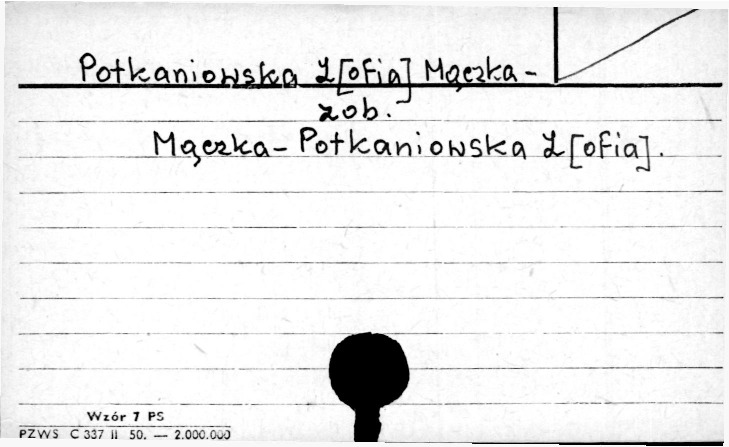 Potkaniowska Z[ofia] Mączka-
zob.
Mączka-Potkaniowska Z[ofia].
Wzór 7 PS
PZWS C 337 II 50. — 2.000.000